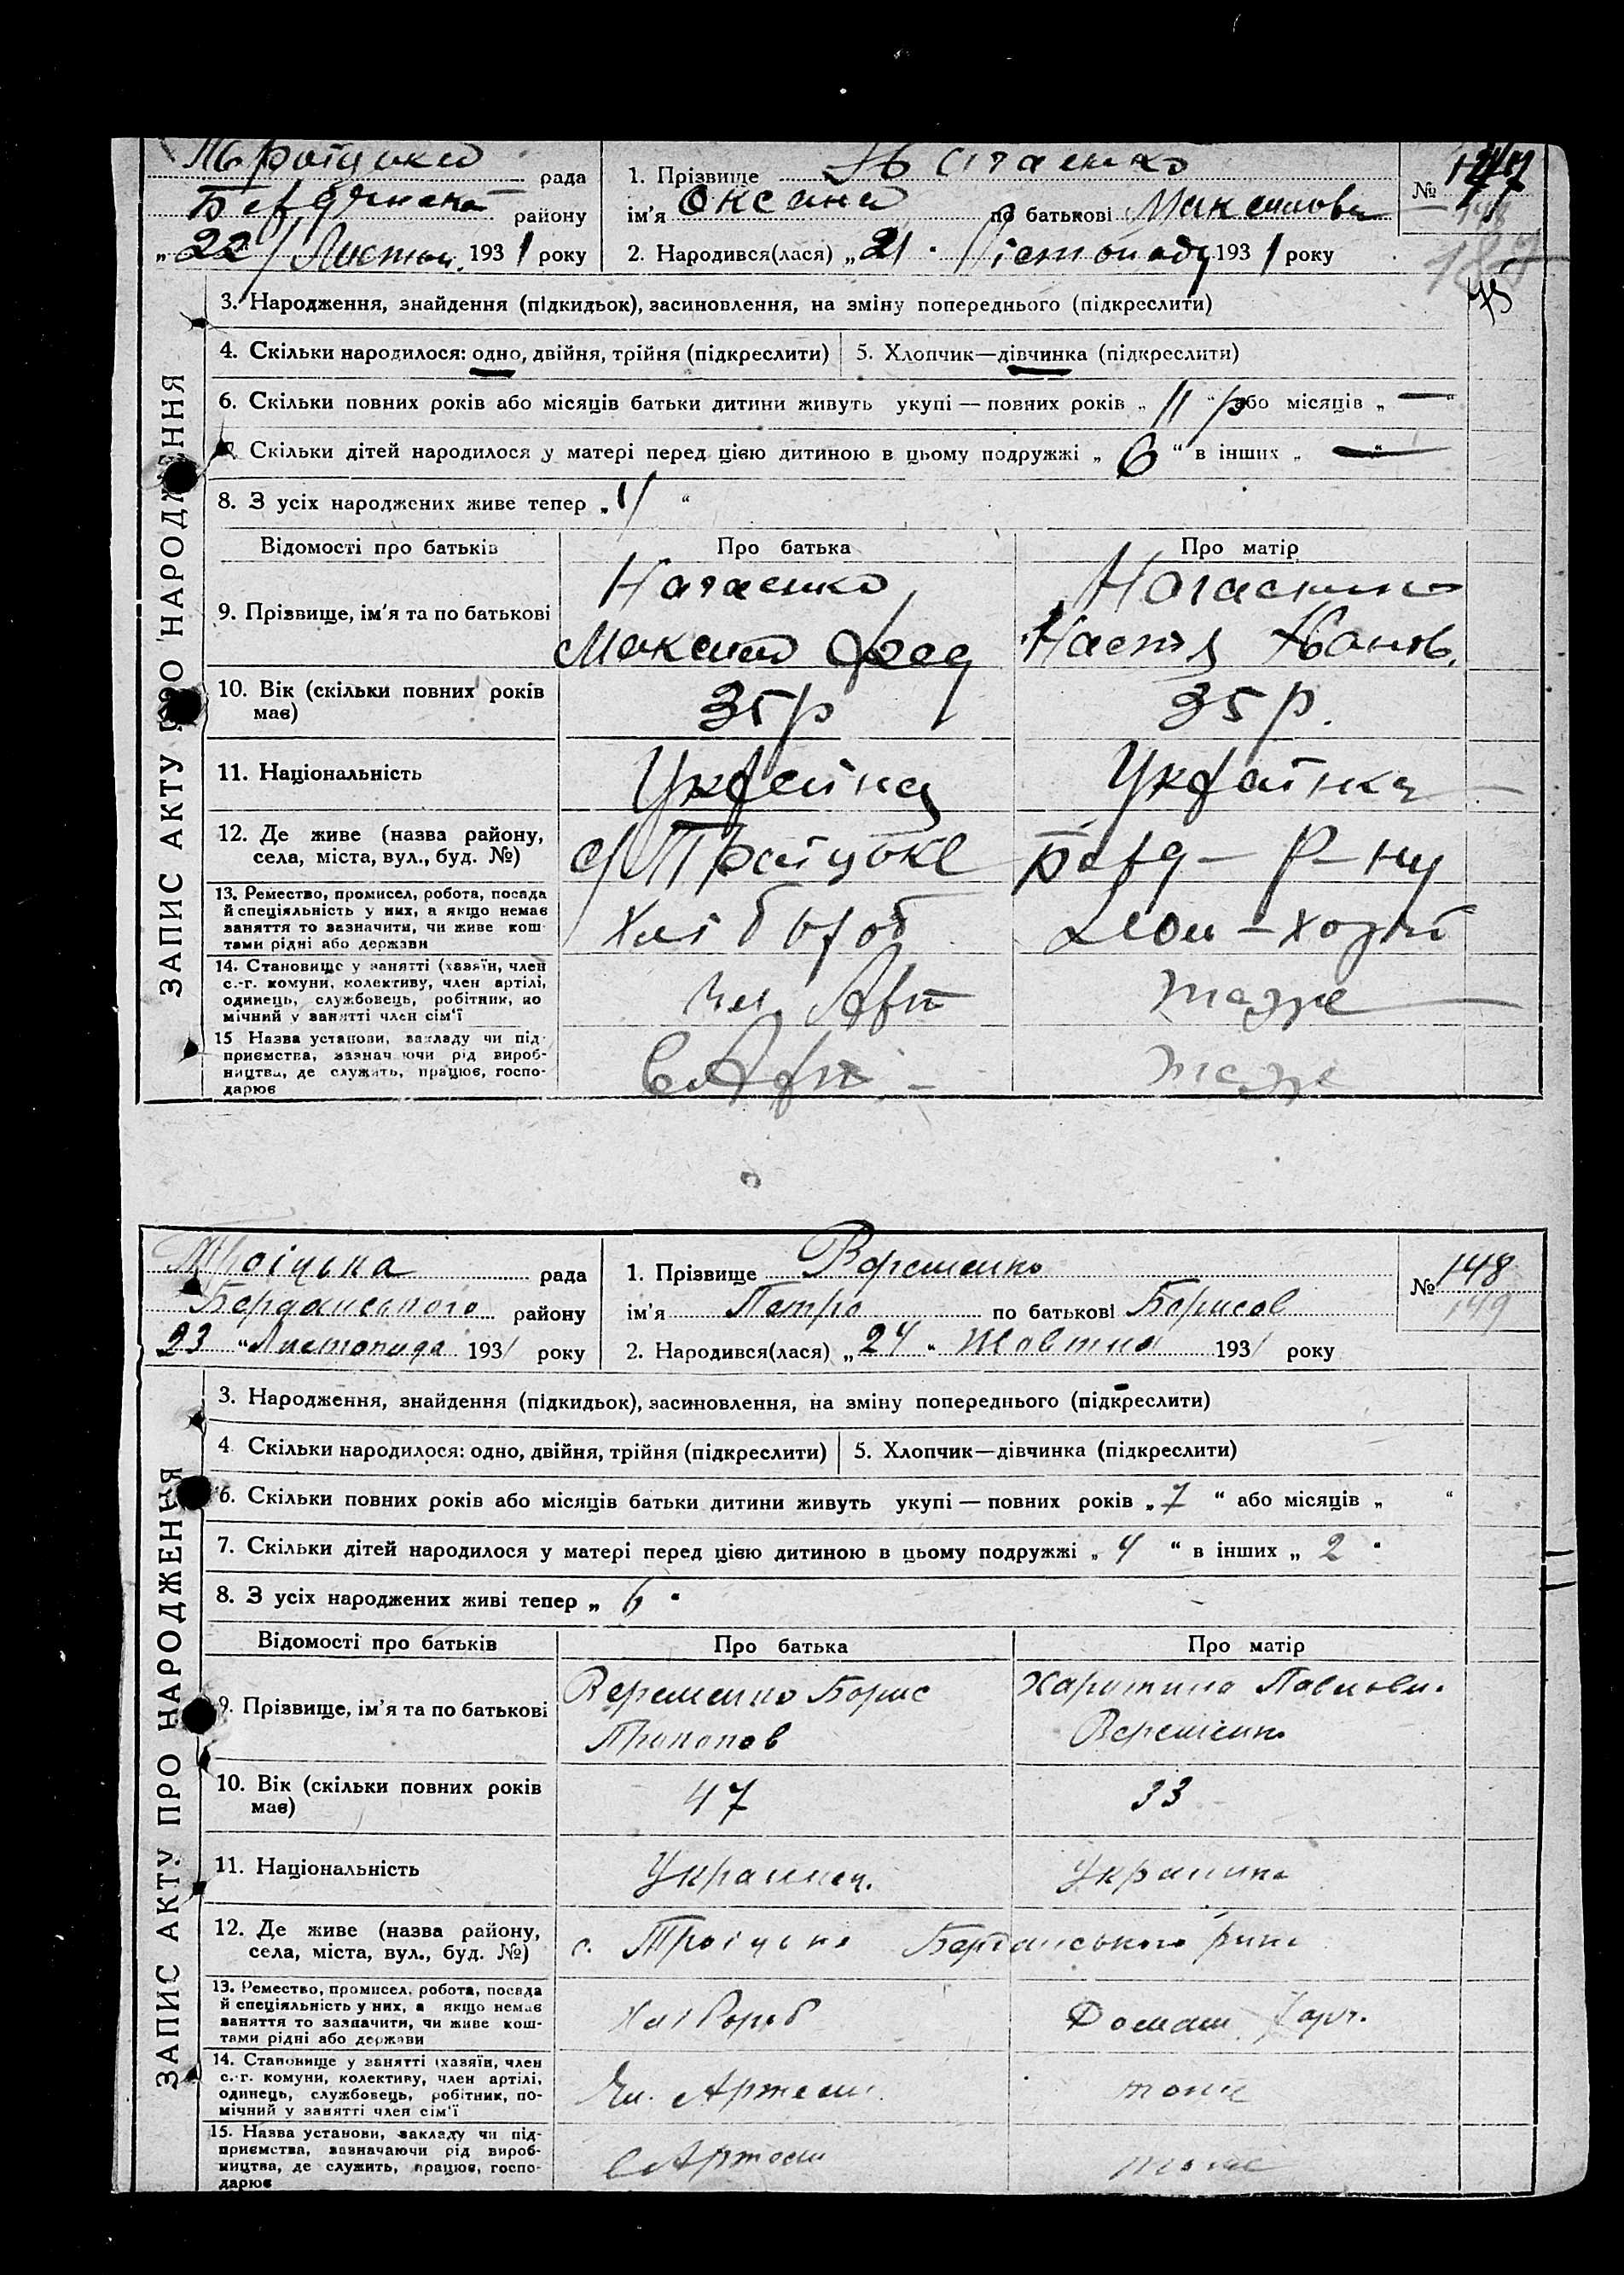 Троицкой рада
Бердянська району
„22“ Листоп. 1931 року
1. Прізвище
ім'я Оксана по батькові Максимовн
2. Народився(лася) „21“ Лістопаду 1931 року
№
148
187
75
ЗАПИС АКТУ ПРО НАРОДЖЕННЯ
3. Народження, знайдення (підкидьок), засиновлення, на зміну попереднього (підкреслити)
4. Скільки народилося: одно, двійня, трійня (підкреслити) 5. Хлопчик—дівчинка (підкреслити)
6. Скільки повних років або місяців батьки дитини живуть укупі — повних років „11 р“ або місяців „—“
7. Скільки дітей народилося у матері перед цією дитиною в цьому подружжі „6“ в інших „—“
8. З усіх народжених живе тепер „4“
Відомості про батьків Про батька Про матір
9. Прізвище, ім'я та по батькові
Максим Фед Настя Іванов.
10. Вік (скільки повних років має) 35 р 35 р.
11. Національність Украінец Украінка
12. Де живе (назва району, села, міста, вул., буд. №) с/Троіцьке Берд – Р – ну
13. Ремество, промисел, робота, посада
й спеціяльність у них, а якщо немає
заняття то зазначити, чи живе кош-
тами рідні або держави
Хлібороб Дом – хозяй
14. Становище у занятті (хазяїн, член
с.-г. комуни, колективу, член артілі,
одинець, службовець, робітник, по
мічний у занятті член сім'ї
Чл. Арт тоже
15 Назва установи, закладу чи під-
приємства, зазначаючи рід вироб-
ництва, де служить, працює, госпо-
дарює
С. Арт – тоже
Троіцька рада
Берданського району
23 “ Листопада 1931 року
1. Прізвище Веременко
ім'я Петро по батькові Борисов
2. Народився(лася) „24“ Жовтня 1931 року
№ 148
149
ЗАПИС АКТУ ПРО НАРОДЖЕННЯ
3. Народження, знайдення (підкидьок), засиновлення, на зміну попереднього (підкреслити)
4. Скільки народилося: одно, двійня, трійня (підкреслити) 5. Хлопчик—дівчинка (підкреслити)
6. Скільки повних років або місяців батьки дитини живуть укупі — повних років „7“ або місяців „ “
7. Скільки дітей народилося у матері перед цією дитиною в цьому подружжі „4“ в інших „2“
8. З усіх народжених живі тепер „6“
Відомості про батьків Про батька Про матір
9. Прізвище, ім'я та по батькові
Веременко Борис Харитина Павловн.
Прокопов Веременко
10. Вік (скільки повних років має) 47 33
11. Національність Украинец. Украинка
12. Де живе (назва району, села, міста, вул., буд. №) с. Троіцьке Берданського
13. Ремество, промисел, робота, посада
й спеціяльність у них, а якщо немає
заняття то зазначити, чи живе кош-
тами рідні або держави
Хлібороб Домаш.
14. Становище у занятті (хазяїн, член
с.-г. комуни, колективу, член артілі,
одинець, службовець, робітник, по-
мічний у занятті член сім'ї
Чл. Артели тоже
15. Назва установи, закладу чи під-
приємства, зазначаючи рід вироб-
ництва, де служить, працює, госпо-
дарює
с Артели тоже